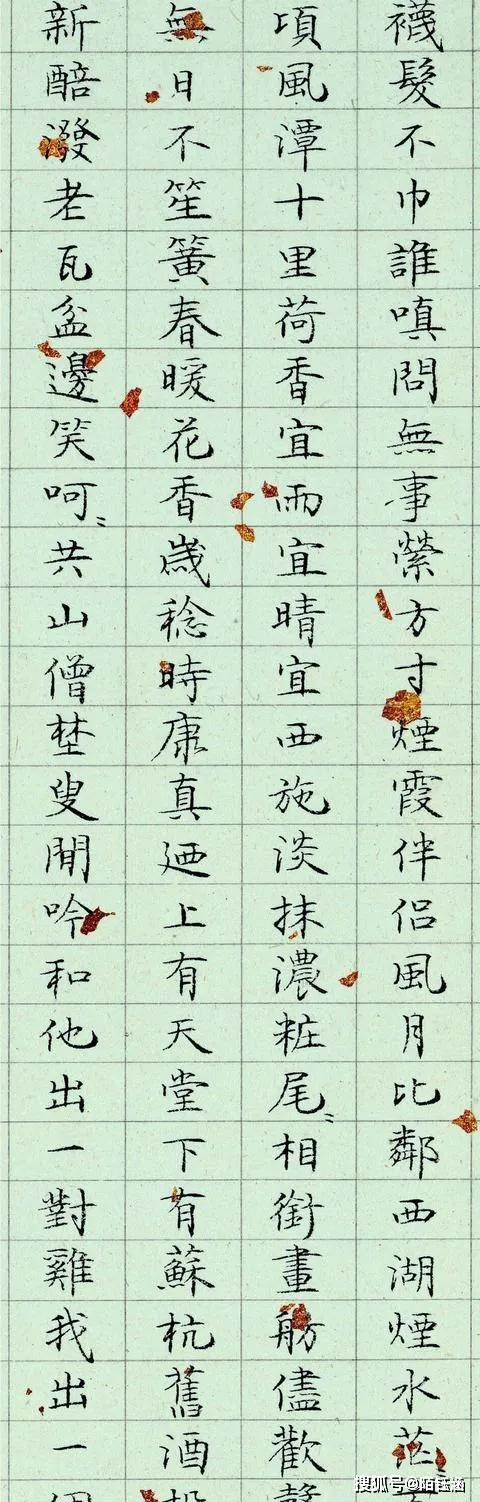 襪髮不巾誰嗔問無事縈方寸煙霞伴侶風月比鄰西湖煙水茫
頃風潭十里荷香宜雨宜晴宜西施淡抹濃粧尾〻相銜畫舫儘歡聲
無日不笙簧春暖花香歲稔時康真迺上有天堂下有蘇杭舊酒投
新醅潑老瓦盆邊笑呵〻共山僧埜叟閒吟和他出一對雞我出一個
搜狐号@陌